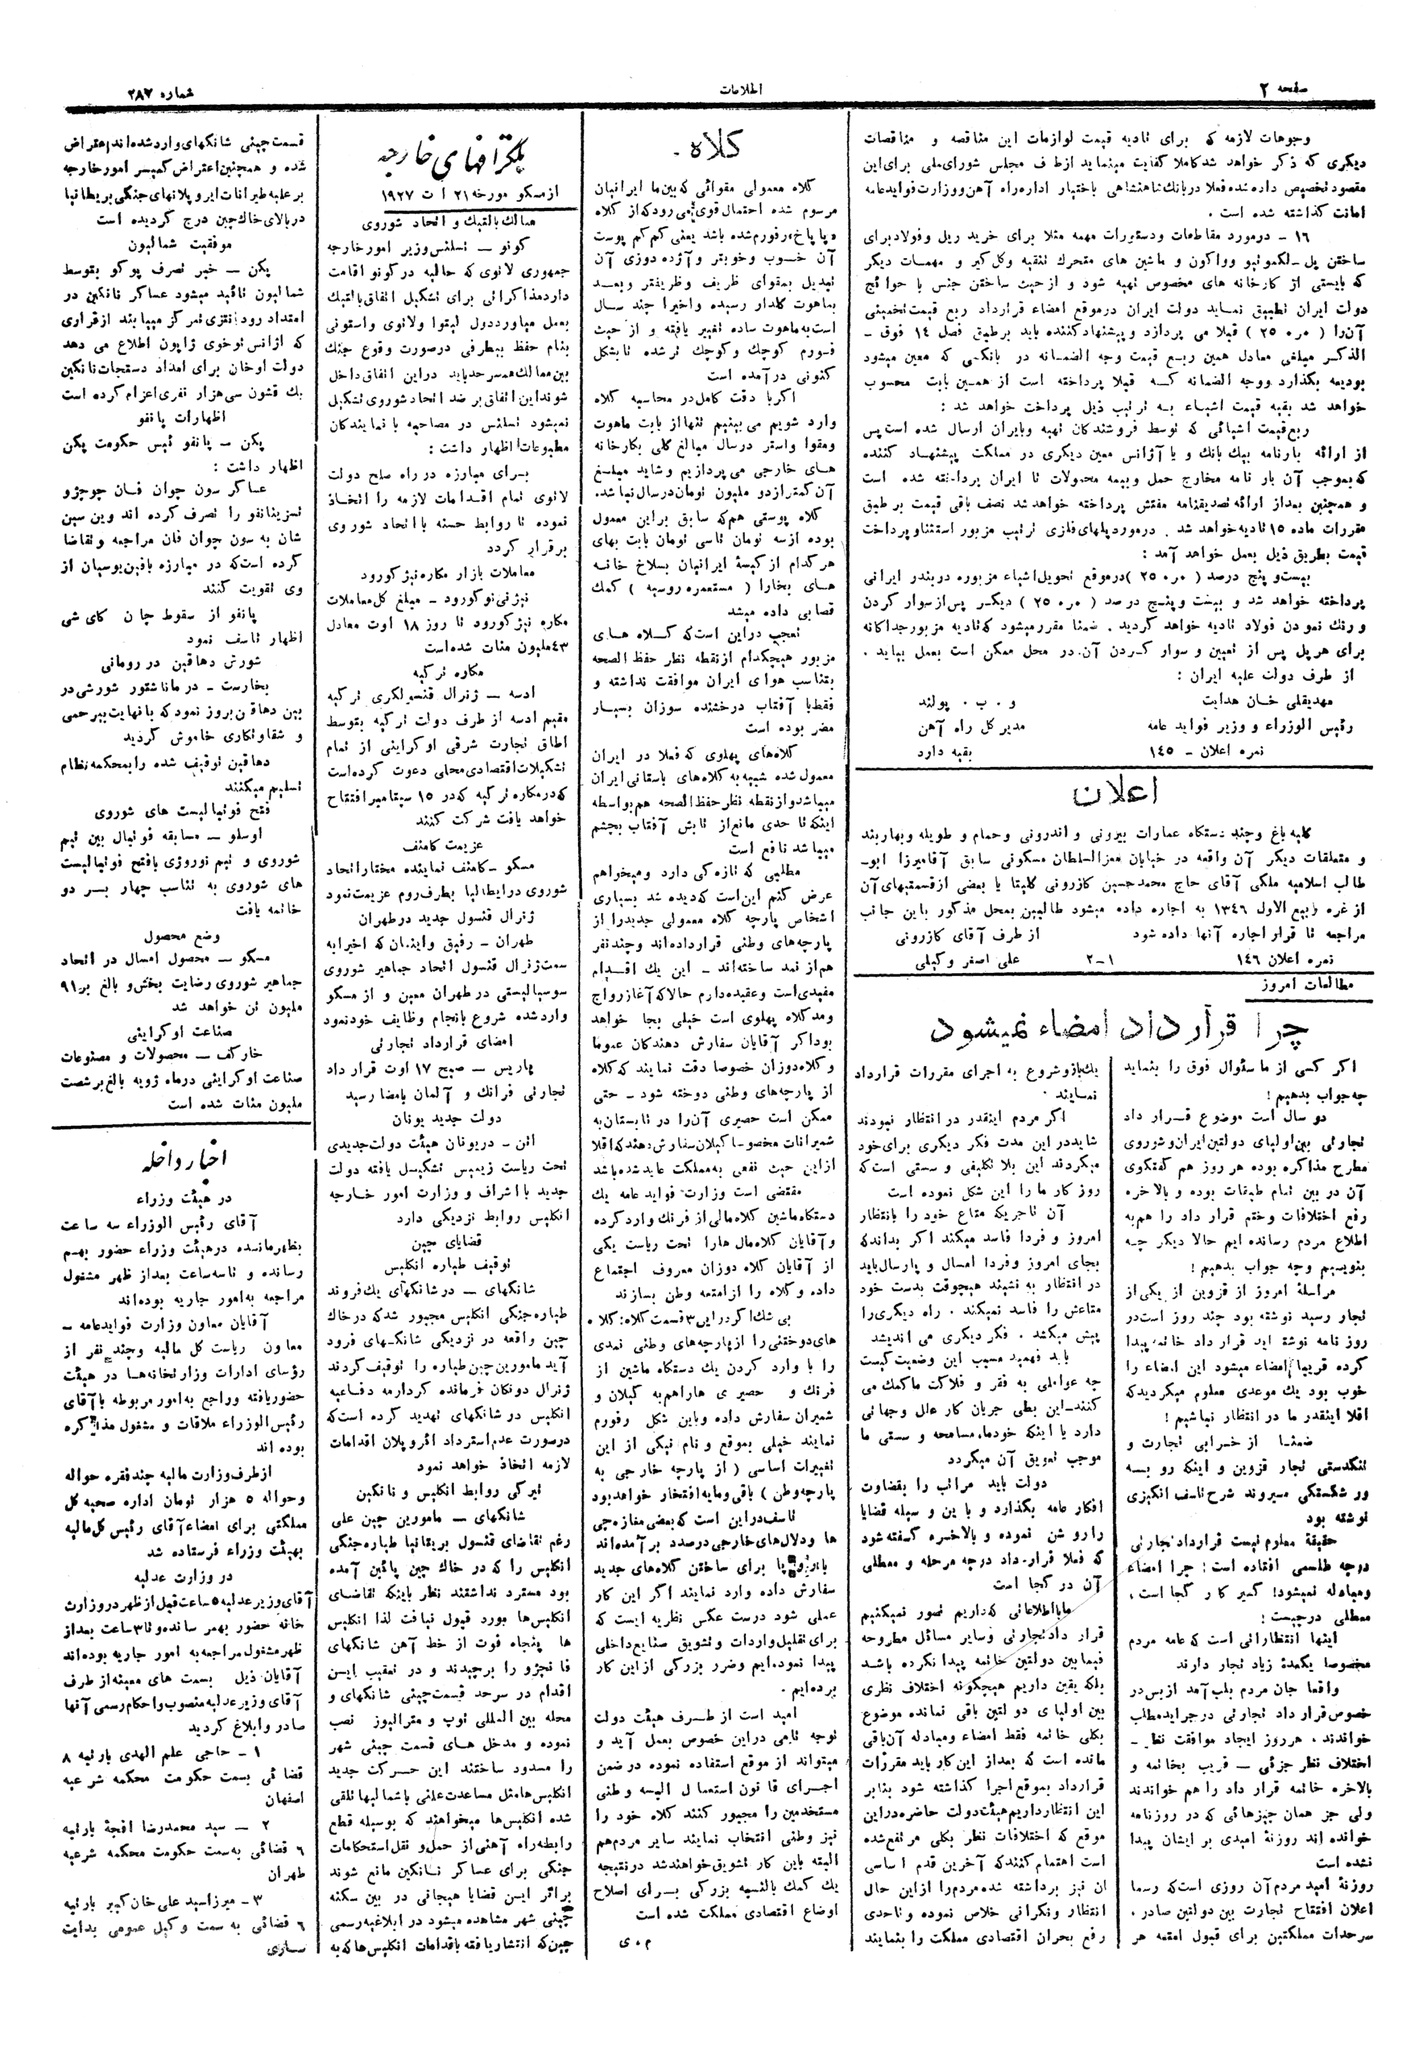 صفحه ۲
اطلاعات
شماره ۲۸۷
وجوهات لازمه که برای تادیه قیمت لوازمات این مناقصه و مناقصات
دیگری که ذکر خواهد شد کاملا کفایت مینماید از طرف مجلس شورای ملی برای این
مقصود تخصیص داده شده فعلا در بانک شاهنشاهی باختیار اداره راه آهن و وزارت فواید عامه
امانت گذاشته شده است .
۱۶ - در مورد مقاطعات و دستورات مهمه مثلا برای خرید ریل و فولاد برای
ساختن پل - لکموتیو و واگون و ماشین های متحرک تنقیه و گل گیر و مهمات دیگر
که بایستی از کارخانه های مخصوص تهیه شود و از حیث ساختن جنس با حوائج
دولت ایران تطبیق نماید دولت ایران در موقع امضاء قرارداد ربع قیمت تخمینی
آن را ( ۲۵ ٠ر٠ ) قبلا می پردازد و پیشنهاد کننده باید بر طبق فصل ۱۴ فوق -
الذکر مبلغی معادل همین ربع قیمت وجه الضمانه در بانکی که معین میشود
بودیعه بگذارد و وجه الضمانه که قبلا پرداخته است از همین بابت محسوب
خواهد شد بقیه قیمت اشیاء به ترتیب ذیل پرداخت خواهد شد :
ربع قیمت اشیائی که توسط فروشندگان تهیه و بایران ارسال شده است پس
از ارائه بارنامه ببک بانک و یا آژانس معین دیگری در مملکت پیشنهاد کننده
که بموجب آن بار نامه مخارج حمل و بیمه محمولات تا ایران پرداخته شده است
و همچنین بعد از ارائه تصدیقنامه مفتش پرداخته خواهد شد نصف باقی قیمت بر طبق
مقررات ماده ۱۵ تادیه خواهد شد . در مورد پلهای فلزی ترتیب مزبور استثناو پرداخت
قیمت بطریق ذیل بعمل خواهد آمد :
بیست و پنج درصد ( ۲۵ ٠ر٠ ) در موقع تحویل اشیاء مزبوره در بندر ایرانی
پرداخته خواهد شد و بیست و پنج درصد ( ۲۵ ٠ر٠ ) دیگر پس از سوار کردن
و رنگ نمودن فولاد تادیه خواهد گردید . ضمنا مقرر میشود که تادیه مزبور جداگانه
برای هر پل پس از تعیین و سوار کردن آن در محل ممکن است بعمل بیاید .
از طرف دولت علیه ایران :
مهدیقلی خان هدایت
و . ب . پولند
رئیس الوزراء و وزیر فواید عامه
مدیر کل راه آهن
نمره اعلان - ۱۴۵
بقیه دارد
اعلان
کلیه باغ و چند دستگاه عمارات بیرونی و اندرونی و حمام و طویله و بهاربند
و متعلقات دیگر آن واقعه در خیابان معزالسلطان مسکونی سابق آقا میرزا ابو-
طالب اسلامیه ملکی آقای حاج محمد حسین کازرونی کلیتا یا بعضی از قسمتهای آن
از غره ربیع الاول ۱۳۴۶ به اجاره داده میشود طالبین بمحل مذکور باین جانب
مراجعه تا قرار اجاره آنها داده شود
از طرف آقای کازرونی
نمره اعلان ۱۴۶
۱-۲
علی اصغر وکیلی
مطالعات امروز
چرا قرارداد امضاء نمیشود
اگر کسی از ما سئوال فوق را بنماید
چه جواب بدهیم !
دو سال است موضوع قرار داد
تجارتی بین اولیای دولتین ایران و شوروی
مطرح مذاکره بوده هر روز هم گفتگوی
آن در بین تمام طبقات بوده و بالاخره
رفع اختلافات و ختم قرار داد را هم به
اطلاع مردم رسانده ایم حالا دیگر چه
بنویسیم وچه جواب بدهیم !
مراسلۀ امروز از قزوین از یکی از
تجار رسید نوشته بود چند روز است در
روز نامه نوشته اید قرار داد خاتمه پیدا
کرده قریبا امضاء میشود این امضاء را
خوب بود یک موعدی معلوم میکردید که
اقلا اینقدر ما در انتظار نباشیم !
ضمنا از خرابی تجارت و
تنگدستی تجار قزوین و اینکه رو بسه
ور شکستگی میروند شرح تاسف انگیزی
نوشته بود
حقیقة معلوم نیست قرارداد تجارتی
دوچه طلسمی افتاده است ! چرا امضاء
و مبادله نمیشود! گیر کار کجا است ،
معطلی در چیست !
اینها انتظاراتی است که عامه مردم
مخصوصا یکعدۀ زیاد تجار دارند
واقعا جان مردم بلب آمد از بس در
خصوص قرار داد تجارتی در جراید مطلب
خواندند . هر روز ایجاد موافقت نظر -
اختلاف نظر جزئی - قریب بخاتمه و
بالاخره خاتمه قرار داد را هم خواندند
ولی جز همان چیزهائی که در روزنامه
خوانده اند روزنۀ امیدی بر ایشان پیدا
نشده است
روزنۀ امید مردم آن روزی است که رسما
اعلان افتتاح تجارت بین دولتین صادر ،
سرحدات مملکتین برای قبول امتعه هر
یک باز و شروع به اجرای مقررات قرارداد
نمایند .
اگر مردم اینقدر در انتظار نبودند
شاید در این مدت فکر دیگری برای خود
میکردند این بلا تکلیفی و سستی است که
روز کار ما را این شکل نموده است
آن تاجریکه متاع خود را بانتظار
امروز و فردا فاسد میکند اگر بداند که
بجای امروز و فردا امسال و پارسال باید
در انتظار به نشیند هیچوقت بدست خود
متاعش را فاسد نمیکند . راه دیگری را
پیش میکشد . فکر دیگری می اندیشد
باید فهمید مسبب این وضعیت کیست
چه عواملی به فقر و فلاکت ما کمک می
کنند - این بطی جریان کار علل و جهاتی
دارد یا اینکه خود ما، مسامحه و سستی ما
موجب تعویق آن میگردد
دولت باید مراتب را بقضاوت
افکار عامه بگذارد و با ین و سیله قضایا
را رو شن نموده و بالاخره گفته شود
که فعلا قرار داد درچه مرحله و معطلی
آن در کجا است
ما با اطلاعاتی که داریم تصور نمیکنیم
قرار داد تجارتی و سایر مسائل مطروحه
فیما بین دولتین خاتمه پیدا نکرده باشد
بلکه یقین داریم هیچگونه اختلاف نظری
بین اولیای دولتین باقی نمانده موضوع
بکلی خاتمه فقط امضاء و مبادله آن باقی
مانده است که بعد از این کار باید مقررات
قرارداد بموقع اجرا گذاشته شود بنابر
این انتظار داریم هیئت دولت حاضره در این
موقع که اختلافات نظر بکلی مرتفع شده
است اهتمام کنند که آخرین قدم اساسی
ان نیز برداشته شده مردم را از این حال
انتظار و نگرانی خلاص نموده و تاحدی
رفع بحران اقتصادی مملکت را بنمایند
کلاه .
کلاه معمولی مقوائی که بین ما ایرانیان
مرسوم شده احتمال قوی میرود که از کلاه
«پا پاخ» رفورم شده باشد یعنی کم کم پوست
آن خوب و خوبتر و آژده دوزی آن
تبدیل بمقوای ظریف و ظریفتر و بعد
بماهوت گلدار رسیده و اخیرا چند سال
است به ماهوت ساده تغییر یافته و از حیث
فورم کوچک و کوچک تر شده تا بشکل
کنونی در آمده است
اگر با دقت کامل در محاسبه کلاه
وارد شویم می بینیم تنها از بابت ماهوت
و مقوا و استر در سال مبالغ کلی بکارخانه
های خارجی می پردازیم و شاید مبلغ
آن کمتر از دو ملیون تومان در سال نباشد.
کلاه پوستی هم که سابق بر این معمول
بوده از سه تومان تا سی تومان بابت بهای
هر کدام از کیسۀ ایرانیان بسلاخ خانه
های بخارا ( مستعمره روسیه ) کمک
قصابی داده میشد
تعجب در این است که کلاه های
مزبور هیچکدام از نقطه نظر حفظ الصحه
بتناسب هوای ایران موافقت نداشته و
فقط با آفتاب درخشنده سوزان بسیار
مضر بوده است
کلاه‌های پهلوی که فعلا در ایران
معمول شده شبیه به کلاه‌های باستانی ایران
میباشد و از نقطه نظر حفظ الصحه هم بواسطه
اینکه تا حدی مانع از تابش آفتاب بچشم
میباشد نافع است
مطلبی که تازه گی دارد و میخواهم
عرض کنم این است که دیده شد بسیاری
اشخاص پارچه کلاه معمولی جدید را از
پارچه‌های وطنی قرارداده اند و چند نفر
هم از نمد ساخته‌اند - این یک اقدام
مفیدی است و عقیده دارم حالا که آغاز رواج
و مد کلاه پهلوی است خیلی بجا خواهد
بود اگر آقایان سفارش دهندگان عموما
و کلاه دوزان خصوصا دقت نمایند که کلاه
از پارچه‌های وطنی دوخته شود - حتی
ممکن است حصیری آن را در تابستان به
شمیرانات مخصوصا گیلان سفارش دهند که اقلا
از این حیث نفعی به مملکت عاید شده باشد
مقتضی است وزارت فواید عامه یک
دستگاه ماشین کلاه مالی از فرنگ وارد کرده
و آقایان کلاه مال ها را تحت ریاست یکی
از آقایان کلاه دوزان معروف اجتماع
داده و کلاه را از امتعه وطن بسازند
بی شک اگر در این ۳ قسمت کلاه : کلاه
های دوختنی را از پارچه‌های وطنی نمدی
را با وارد کردن یک دستگاه ماشین از
فرنگ و حصیری هارا هم به گیلان و
شمیران سفارش داده و باین شکل رفورم
نمایند خیلی بموقع و نام نیکی از این
تغییرات اساسی ( از پارچه خارجی به
پارچه وطن ) باقی و مایه افتخار خواهد بود
تاسف در این است که بعضی مغازه چی
ها و دلال‌های خارجی درصدد بر آمده‌اند
باروپا برای ساختن کلاه‌های جدید
سفارش داده وارد نمایند اگر این کار
عملی شود درست عکس نظریه ایست که
برای تقلیل واردات و تشویق صنایع داخلی
پیدا نموده‌ایم و ضرر بزرگی از این کار
برده‌ایم .
امید است از طرف هیئت دولت
توجه تامی در این خصوص بعمل آید و
میتواند از موقع استفاده نموده در ضمن
اجرای قانون استعمال البسه وطنی
مستخدمین را مجبور کنند کلاه خود را
نیز وطنی انتخاب نمایند سایر مردم هم
البته باین کار تشویق خواهند شد در نتیجه
یک کمک بالنسبه بزرگی برای اصلاح
اوضاع اقتصادی مملکت شده است
م . ی
تلگرافهای خارجه
از مسکو مورخه ۲۱ ا ت ۱۹۲۷
ممالک بالتیک و اتحاد شوروی
کونو - نسلتس وزیر امور خارجه
جمهوری لاتوی که حالیه در کونو اقامت
دارد مذاکراتی برای تشکیل اتفاق بالتیک
بعمل میاورد دول لیتوا و لاتوی و استونی
بنام حفظ بیطرفی در صورت وقوع جنگ
بین ممالک همسر حد باید در این اتفاق داخل
شوند این اتفاق بر ضد اتحاد شوروی تشکیل
نمیشود نسلتس در مصاحبه با نمایندگان
مطبوعات اظهار داشت :
برای مبارزه در راه صلح دولت
لاتوی تمام اقدامات لازمه را اتخاذ
نموده تا روابط حسنه با اتحاد شوروی
برقرار گردد
معاملات بازار مکاره نیژگورود
نیژنی نوگورود - مبلغ کل معاملات
مکاره نیژگورود تا روز ۱۸ اوت معادل
۴۳ ملیون منات شده است
مکاره ترکیه
ادسه - ژنرال قنسولگری ترکیه
مقیم ادسه از طرف دولت ترکیه بتوسط
اطاق تجارت شرقی اوکراینی از تمام
تشکیلات اقتصادی محلی دعوت کرده است
که در مکاره ترکیه که در ۱۵ سپتامبر افتتاح
خواهد یافت شرکت کنند
عزیمت کامنف
مسکو - کامنف نماینده مختار اتحاد
شوروی در ایطالیا بطرف روم عزیمت نمود
ژنرال قنسول جدید در طهران
طهران - رفیق و اینمان که اخیرا به
سمت ژنرال قنسول اتحاد جماهیر شوروی
سوسیالیستی در طهران معین و از مسکو
وارد شده شروع بانجام وظایف خود نمود
امضای قرارداد تجارتی
پاریس - صبح ۱۷ اوت قرار داد
تجارتی فرانک و آلمان بامضا رسید
دولت جدید یونان
اتن - در یونان هیئت دولت جدیدی
تحت ریاست زیمیس تشکیل یافته دولت
جدید با اشراف و وزارت امور خارجه
انگلیس روابط نزدیکی دارد
قضایای چین
توقیف طیاره انگلیس
شانگهای - در شانگهای یک فروند
طیاره جنگی انگلیس مجبور شد که در خاک
چین واقعه در نزدیکی شانگهای فرود
آید مامورین چین طیاره را توقیف کردند
ژنرال دونکان فرمانده گردا رمه دفاعیه
انگلیس در شانگهای تهدید کرده است که
در صورت عدم استرداد ائروپلان اقدامات
لازمه اتخاذ خواهد نمود
تیرگی روابط انگلیس و نانکین
شانگهای - مامورین چین علی
رغم تقاضای قنسول بریتانیا طیاره جنگی
انگلیس را که در خاک چین پائین آمده
بود مسترد نداشتند نظر باینکه تقاضای
انگلیس‌ها مورد قبول نیافت لذا انگلیس
ها پنجاه فوت از خط آهن شانگهای
فانچژو را برچیدند و در تعقیب این
اقدام در سرحد قسمت چینی شانگهای و
محله بین المللی توپ و مترالیوز نصب
نموده و مدخل های قسمت چینی شهر
را مسدود ساختند این حرکت جدید
انگلیس‌ها مثل مساعدت علنی با شمالیها تلقی
شده انگلیس‌ها میخواهند که بوسیله قطع
رابطه راه آهنی از حمل و نقل استحکامات
جنگی برای عساکر نانکین مانع شوند
براثر این قضایا هیجانی در بین سکنه
چینی شهر مشاهده میشود در ابلاغیه رسمی
چین که انتشار یافته با قدامات انگلیس‌ها که به
قسمت چینی شانگهای وارد شده اند اعتراض
شده و همچنین اعتراض کمیسر امور خارجه
بر علیه طیرانات ایروپلانهای جنگی بریطانیا
در بالای خاک چین درج گردیده است
موفقیت شمالیون
پکن - خبر تصرف پوکو بتوسط
شمالیون تائید میشود عساکر نانکین در
امتداد رود انتزی تمرکز مییابند از قراری
که آژانس توخوی ژاپون اطلاع می دهد
دولت اوخان برای امداد دستجات نانکین
یک قشون سی هزار نفری اعزام کرده است
اظهارات پانفو
پکن - پانفو ئیس حکومت پکن
اظهار داشت :
عساکر سون چوان فان چوچژو
تسزینانفو را تصرف کرده اند وین سین
شان به سون چوان فان مراجعه و تقاضا
کرده است که در مبارزه بافین یوسیان از
وی تقویت کنند
پانفو از سقوط چان کای شی
اظهار تاسف نمود
شورش دهاقین در رومانی
بخارست - در مانا شتور شورشی در
بین دهاقین بروز نمود که با نهایت بیرحمی
و شقاوتکاری خاموش گردید
دهاقین توقیف شده را بمحکمه نظام
تسلیم میکنند
فتح فوتبالیست های شوروی
اوسلو - مسابقه فوتبال بین تیم
شوروی و تیم نوروژی با فتح فوتبالیست
های شوروی به تناسب چهار بسر دو
خاتمه یافت
وضع محصول
مسکو - محصول امسال در اتحاد
جماهیر شوروی رضایت بخش و بالغ بر ۹۱
ملیون تن خواهد شد
صناعت اوکراینی
خارکف - محصولات و مصنوعات
صناعت اوکراینی در ماه ژویه بالغ بر شصت
ملیون منات شده است
اخبار داخله
در هیئت وزراء
آقای رئیس الوزراء سه ساعت
بظهر مانده در هیئت وزراء حضور بهم
رسانده و تا سه ساعت بعد از ظهر مشغول
مراجعه به امور جاریه بوده اند
آقایان معاون وزارت فواید عامه -
معاون ریاست کل مالیه و چند نفر از
رؤسای ادارات وزارتخانه‌ها در هیئت
حضور یافته و راجع به امور مربوطه با آقای
رئیس الوزراء ملاقات و مشغول مذاکره
بوده اند
از طرف وزارت مالیه چند فقره حواله
و حواله ۵ هزار تومان اداره صحیه کل
مملکتی برای امضاء آقای رئیس کل مالیه
بهیئت وزراء فرستاده شد
در وزارت عدلیه
آقای وزیر عدلیه ۵ ساعت قبل از ظهر در وزارت
خانه حضور بهمر سانده و تا ۳ ساعت بعد از
ظهر مشغول مراجعه به امور جاریه بوده اند
آقایان ذیل بسمت های معینه از طرف
آقای وزیر عدلیه منصوب و احکام رسمی آنها
صادر و ابلاغ گردید
۱ - حاجی علم الهدی بارتبه ۸
قضائی بسمت حکومت محکمه شرعیه
اصفهان
۲ - سید محمد رضا افجۀ بارتبه
۶ قضائی به سمت حکومت محکمه شرعیه
طهران
۳ - میرزا سید علی خان کبیر بارتبه
۶ قضائی به سمت وکیل عمومی بدایت
ساری